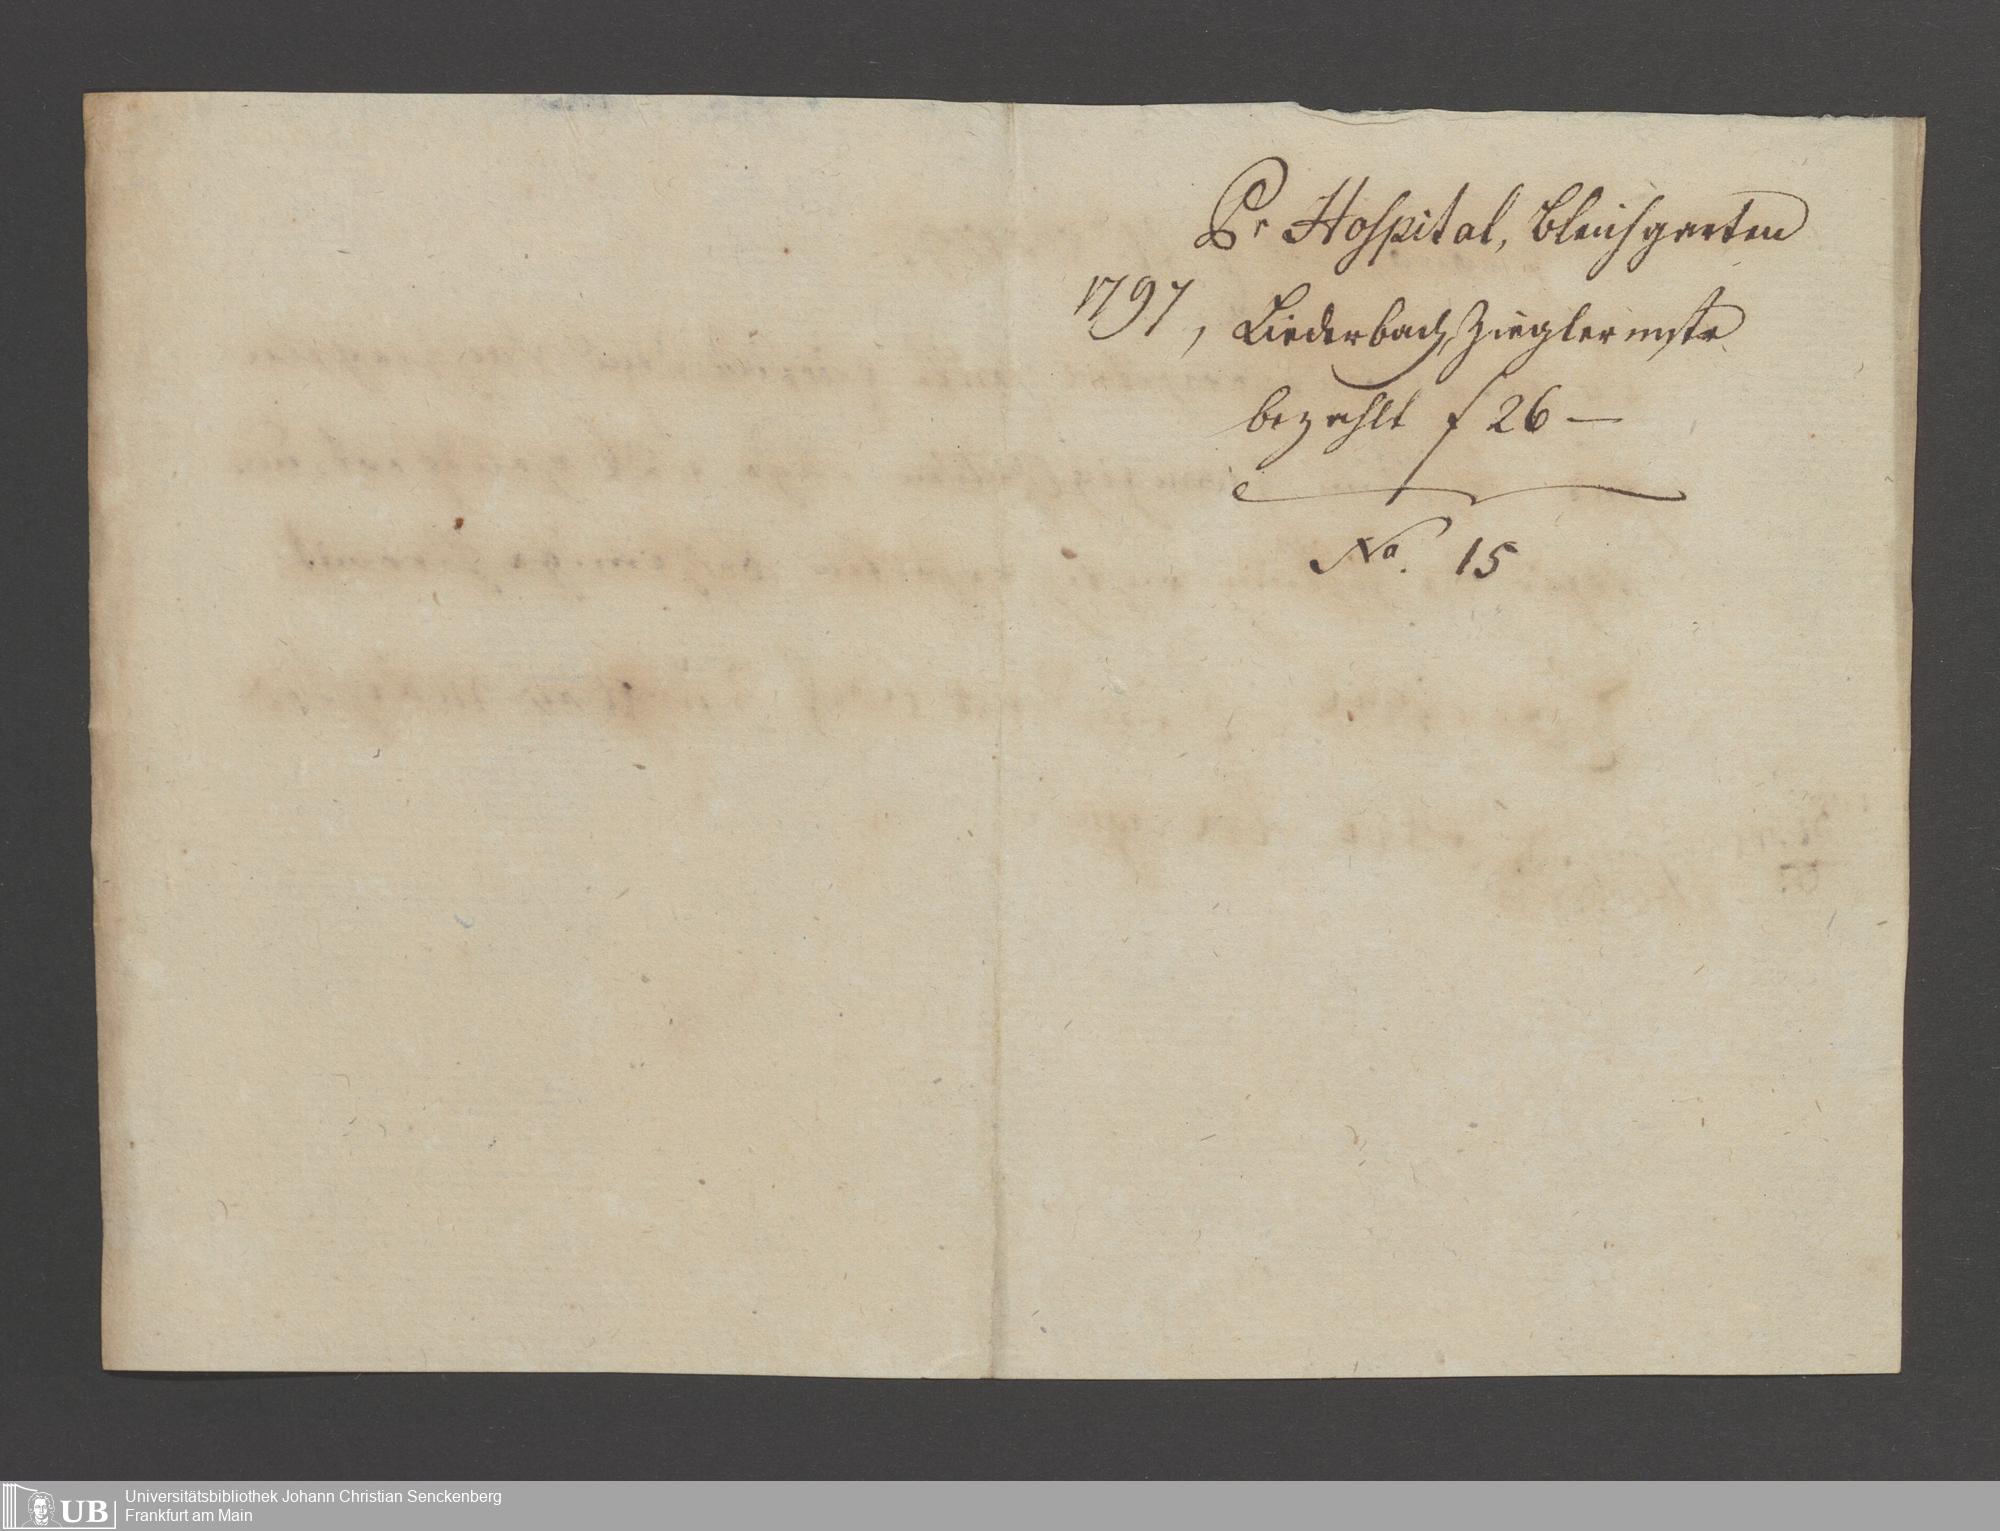 Pr Hospital, Bleichgarten
1797, Liederbach, Zieglermstr
bezahlt f 26 —
No. 15
UB
Universitätsbibliothek Johann Christian Senckenberg
Frankfurt am Main